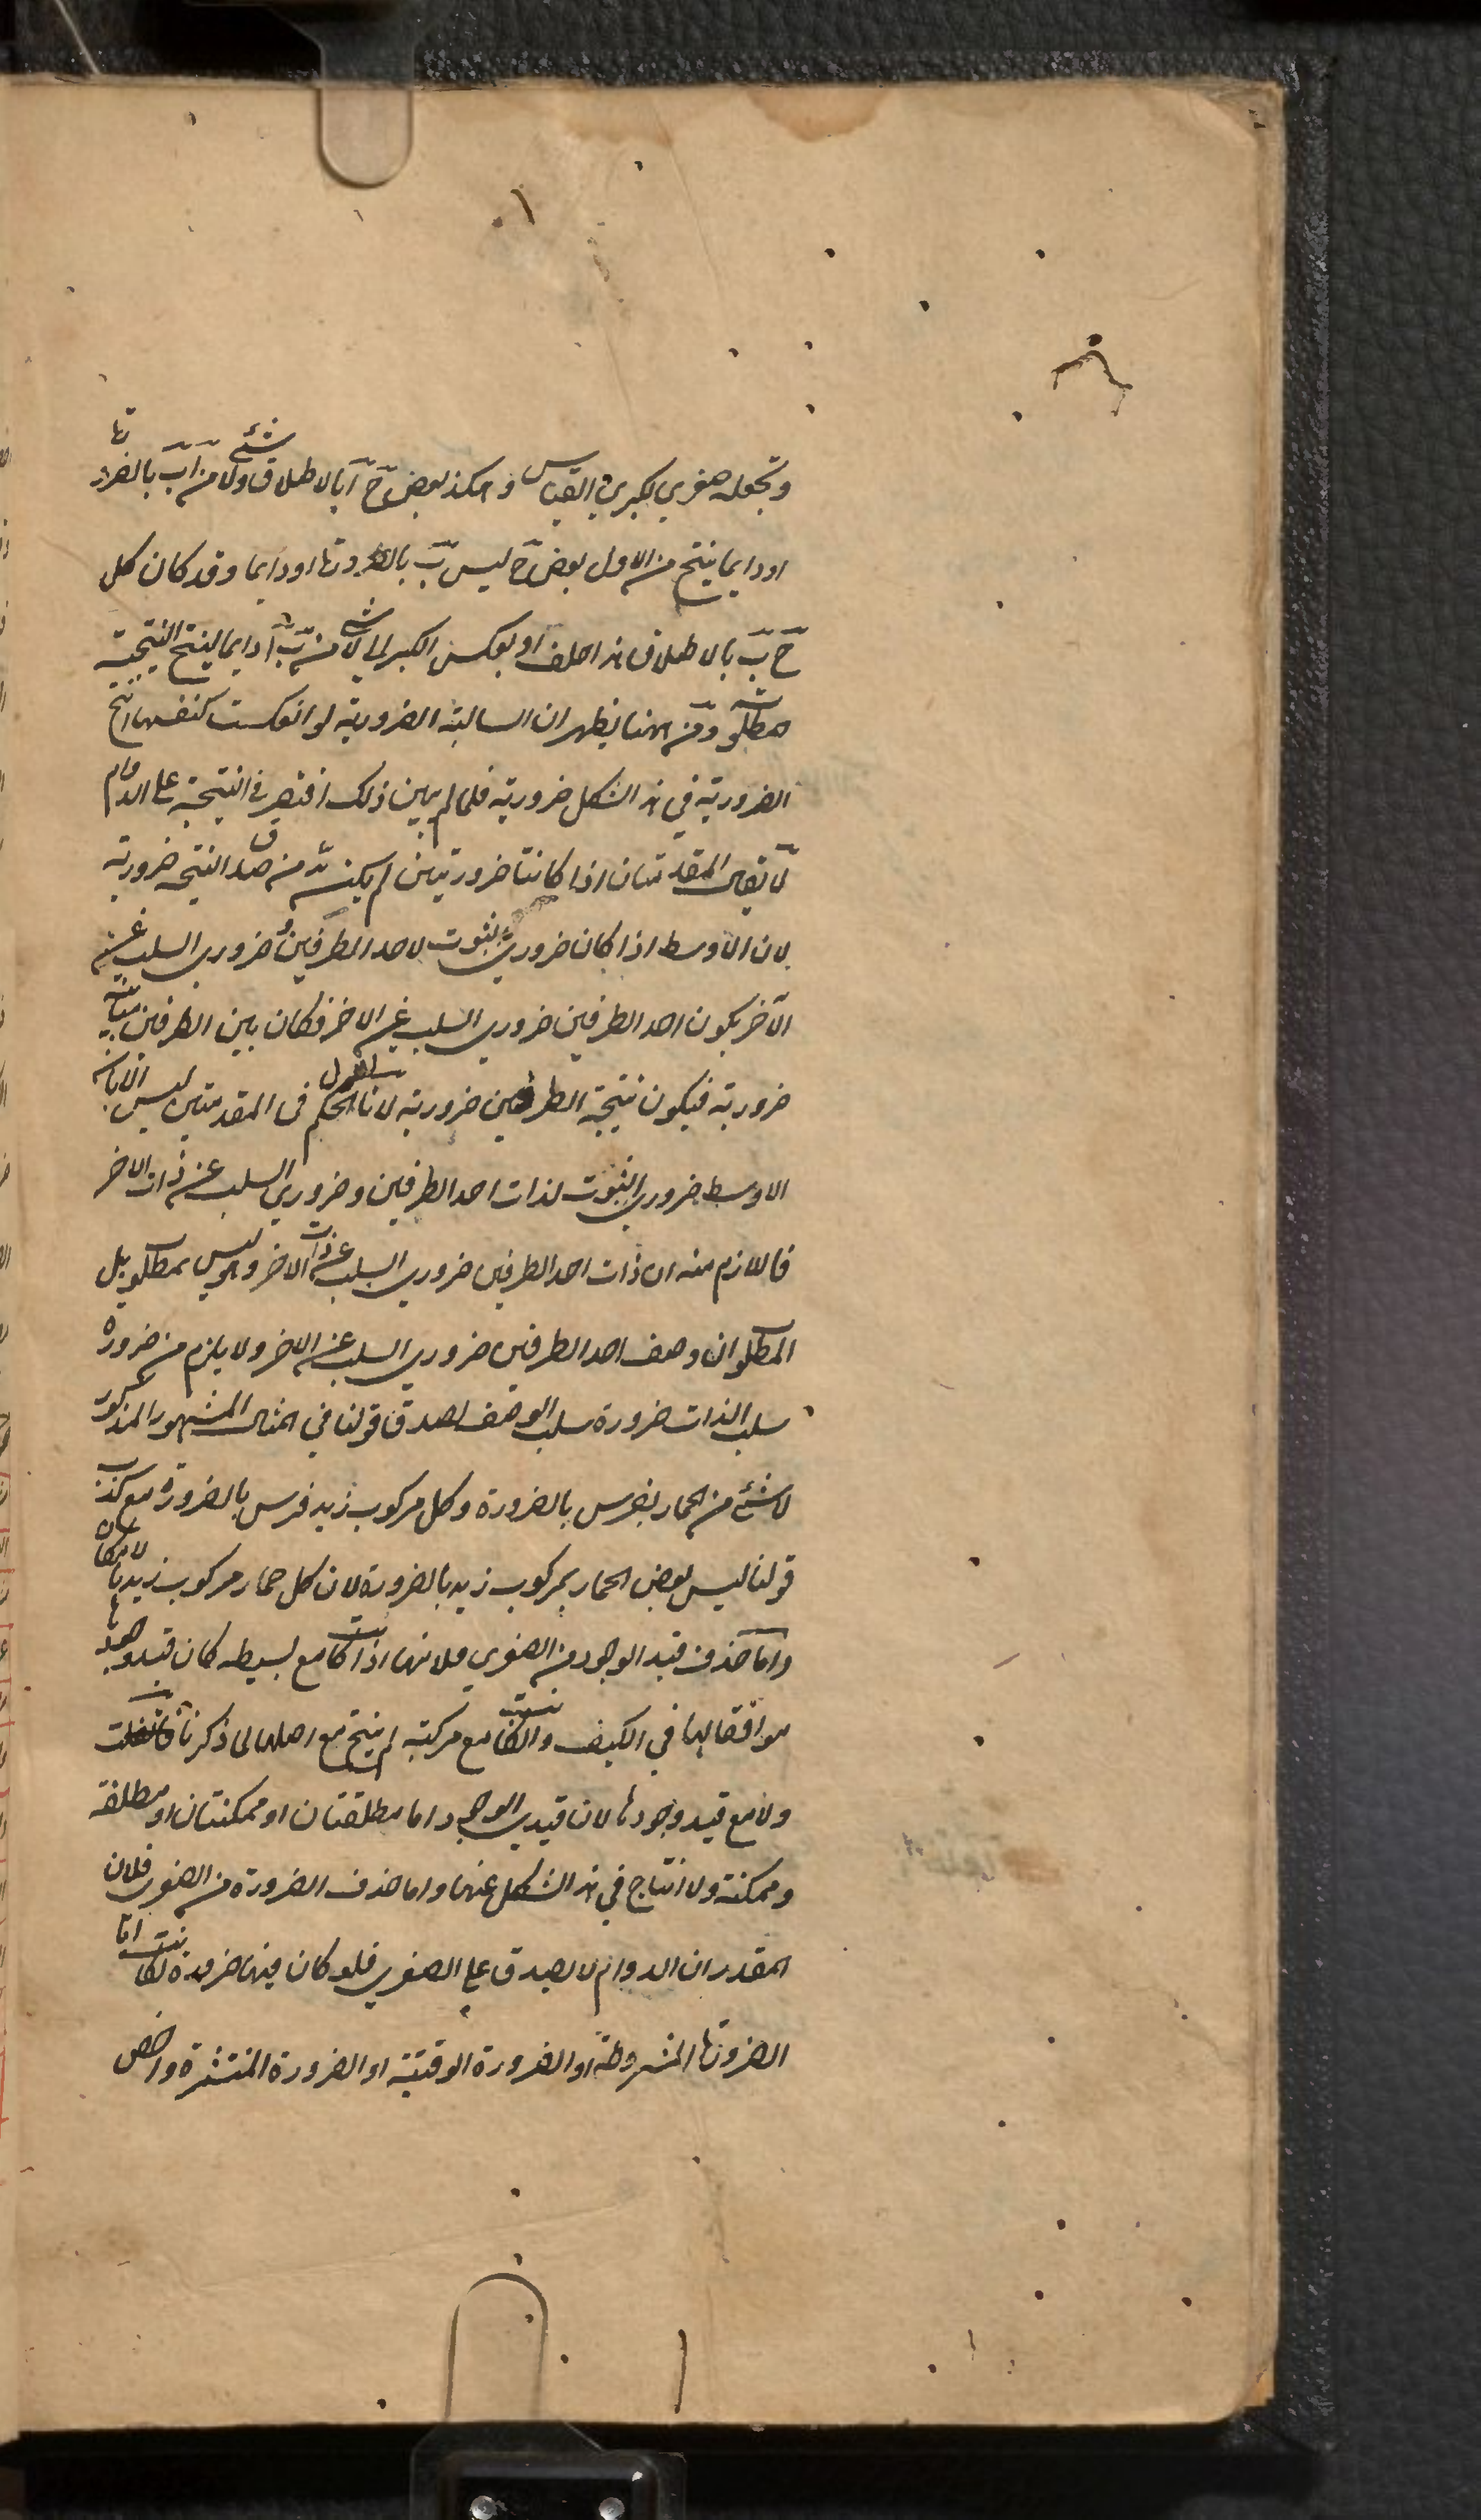 وتجعله صغرى لكبرى القياس و هكذا بعض ج ا بالاطلاق ولا شئ من ا ب بالضرورة
او دايما ينتج من الاول بعض ج ليس ب بالضرورة او دايما وقد كان كل
ج ب بالاطلاق هذا خلف او بعكس الكبرى الى لا شئ من ب ا دايما لينتج النتيجة
المطلوبة ومن ههنا يظهر ان السالبة الضرورية لو انعكست كنفسها انتج
الضرورية في هذا الشكل ضرورية فلما لم يبين ذلك اقتصر في النتيجة على الدوام
لا يقال المقدمتان اذا كانتا ضروريتين لم يكن بد من صدق النتيجة ضرورية
لان الاوسط اذا كان ضروري الثبوت لاحد الطرفين و ضروري السلب عن
الآخر يكون احد الطرفين ضروري السلب عن الاخر فكان بين الطرفين مباينة
ضرورية فيكون نتيجة الطرفين ضرورية لانا نقول الحكم فى المقدمتين ليس الا بان
الاوسط ضروري الثبوت لذات احد الطرفين و ضروري السلب عن ذات الاخر
فاللازم منه ان ذات احد الطرفين ضروري السلب عن ذات الاخر وهو ليس بمطلوب بل
المطلوب ان وصف احد الطرفين ضروري السلب عن الاخر ولا يلزم من ضرورة
سلب الذات ضرورة سلب الوصف لصدق قولنا في المثال المشهور المذكور
لا شئ من الحمار بفرس بالضرورة وكل مركوب زيد فرس بالضرورة مع كذب
قولنا ليس بعض الحمار بمركوب زيد بالضرورة لان كل حمار مركوب زيد بالامكان
واما حذف قيد الوجود من الصغرى فلانها اذا كانت مع بسيطه كان قيد وجودها
موافقا لها في الكيف و ان كانت مع مركبة لم ينتج مع اصلها لما ذكرنا
ولا مع قيد وجودها لان قيدي الوجود اما مطلقتان او ممكنتان او مطلقة
وممكنة ولا انتاج في هذا الشكل عنها واما حذف الضرورة من الصغرى فلان
المقدر ان الدوام لا يصدق على الصغرى فلو كان فيها ضرورة لكانت اما
الضرورة المشروطة او الضرورة الوقتية او الضرورة المنتشرة واخص